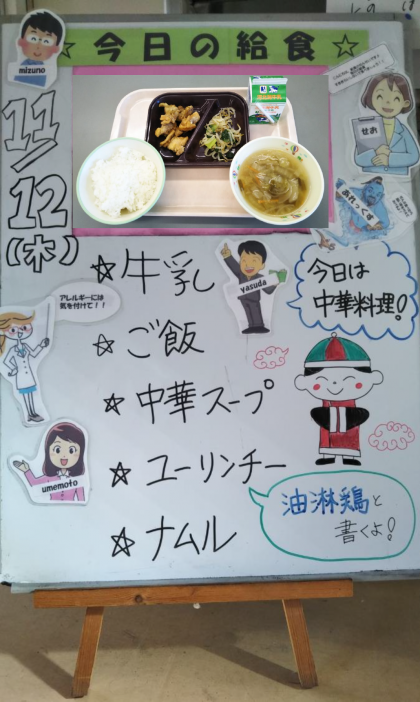 ☆今日の給食☆
mizuno
11/12
(木)
せお
あれっくす
☆牛乳
yasuda
今日は
中華料理!
アレルギーには
気を付けて!!
☆ご飯
☆中華スープ
☆ユーリンチー
umemoto
油淋鶏と
書くよ!
☆ナムル